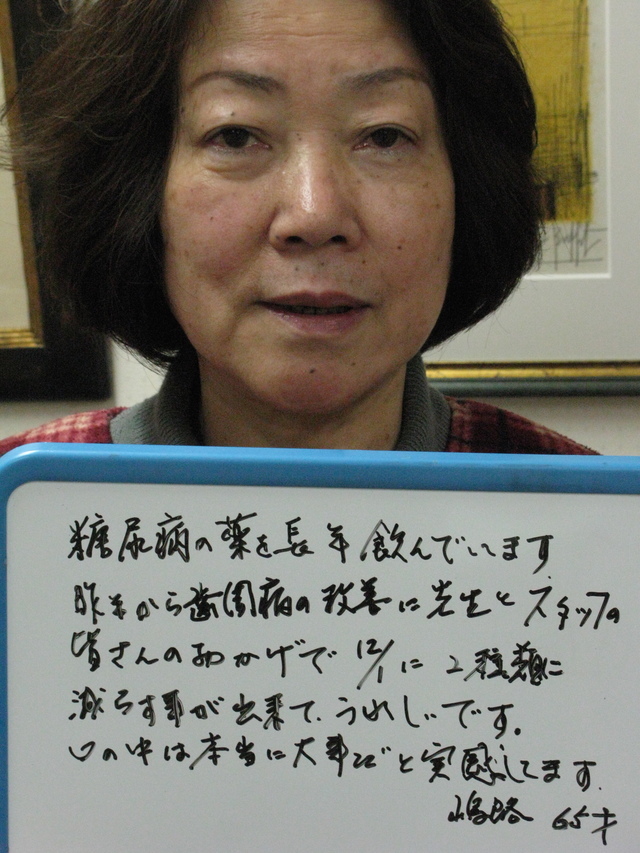 糖尿病の薬を長年飲んでいます
昨年から歯周病の改善に先生とスタッフの
皆さんのおかげで12/1に2種類に
減らす事が出来て、うれしいです。
口の中は本当に大事だと実感してます。
65才